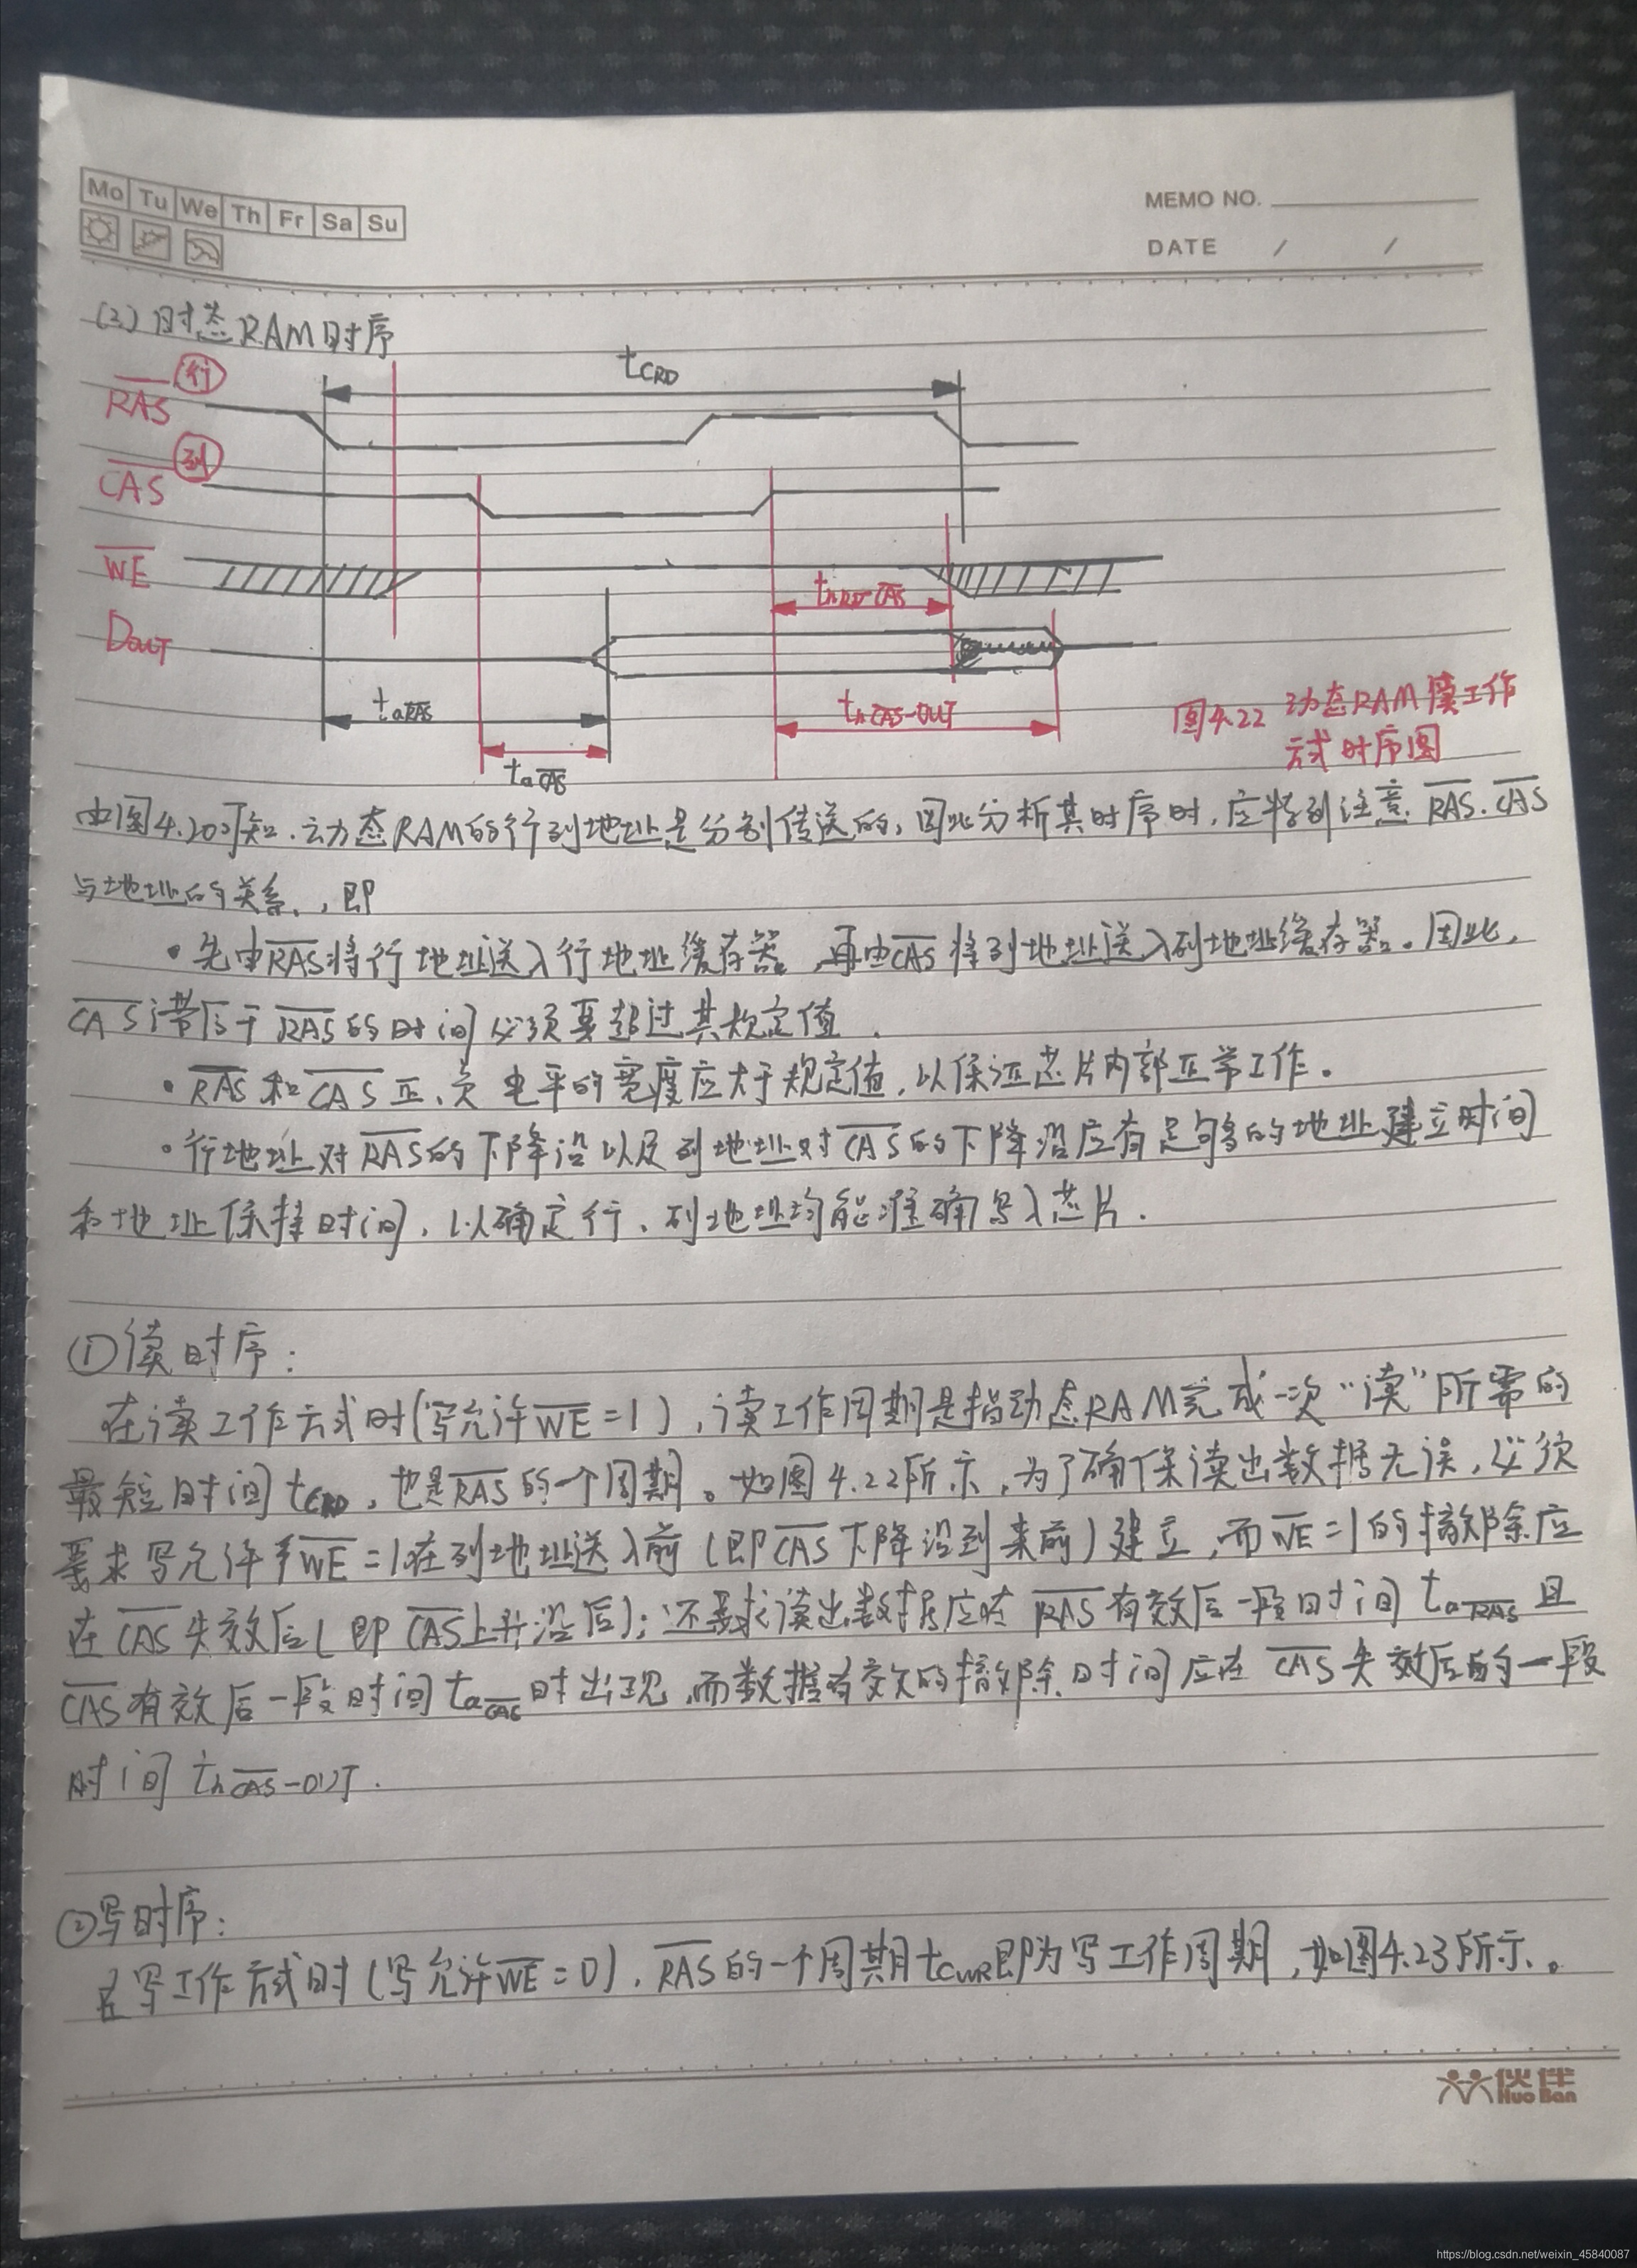 Mo Tu We Th Fr Sa Su
MEMO NO.
DATE / /
(2)时态RAM时序
tCRD
RAS 行
CAS 列
WE
thRD-CAS
DOUT
taRAS
thCAS-OUT
taCAS
图4.22 动态RAM读工作
方式时序图
由图4.20可知.动态RAM的行列地址是分别传送的,因此分析其时序时,应特别注意RAS.CAS
与地址的关系,即
•先由RAS将行地址送入行地址缓存器,再由CAS将列地址送入列地址缓存器。因此,
CAS滞后于RAS的时间必须要超过其规定值.
•RAS和CAS正、负电平的宽度应大于规定值,以保证芯片内部正常工作。
•行地址对RAS的下降沿以及列地址对CAS的下降沿应有足够的地址建立时间
和地址保持时间,以确定行、列地址均能准确写入芯片.
①读时序:
在读工作方式时(写允许WE=1),读工作周期是指动态RAM完成一次“读”所需的
最短时间tCRD,也是RAS的一个周期。如图4.22所示,为了确保读出数据无误,必须
要求写允许WE=1在列地址送入前(即CAS下降沿到来前)建立,而WE=1的撤除应
在CAS失效后(即CAS上升沿后);还要求读出数据应在RAS有效后一段时间taRAS且
CAS有效后一段时间taCAS时出现,而数据有效的撤除时间应在CAS失效后的一段
时间thCAS-OUT.
②写时序:
在写工作方式时(写允许WE=0),RAS的一个周期tCWR即为写工作周期,如图4.23所示。
伙伴
Huo Ban
https://blog.csdn.net/weixin_45840087